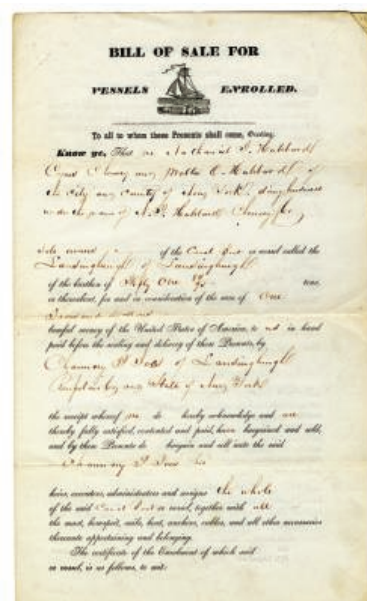 BILL OF SALE FOR
VESSELS ENROLLED.
To all to whom these Presents shall come, Greeting.
Know ye, That we Nathaniel Hubbard
Cyrus and Hubbard of
the City and County of New York, doing business
under the name of N. Hubbard Co
Sole owners of the Canal Boat or vessel called the
Lansingburgh of Lansingburgh
of the burthen of Fifty One tons,
or thereabout, for and in consideration of the sum of One
lawful money of the United States of America, to us in hand
paid before the sealing and delivery of these Presents, by
Chauncey of Lansingburgh
and State of New York
the receipt whereof we do hereby acknowledge and are
thereby fully satisfied, contented and paid, have bargained and sold,
and by these Presents do bargain and sell unto the said
Chauncey his
heirs, executors, administrators and assigns the whole
of the said Canal Boat or vessel, together with all
the mast, bowsprit, sails, boat, anchors, cables, and all other necessaries
thereunto appertaining and belonging.
The certificate of the Enrolment of which said
or vessel, is as follows, to wit: